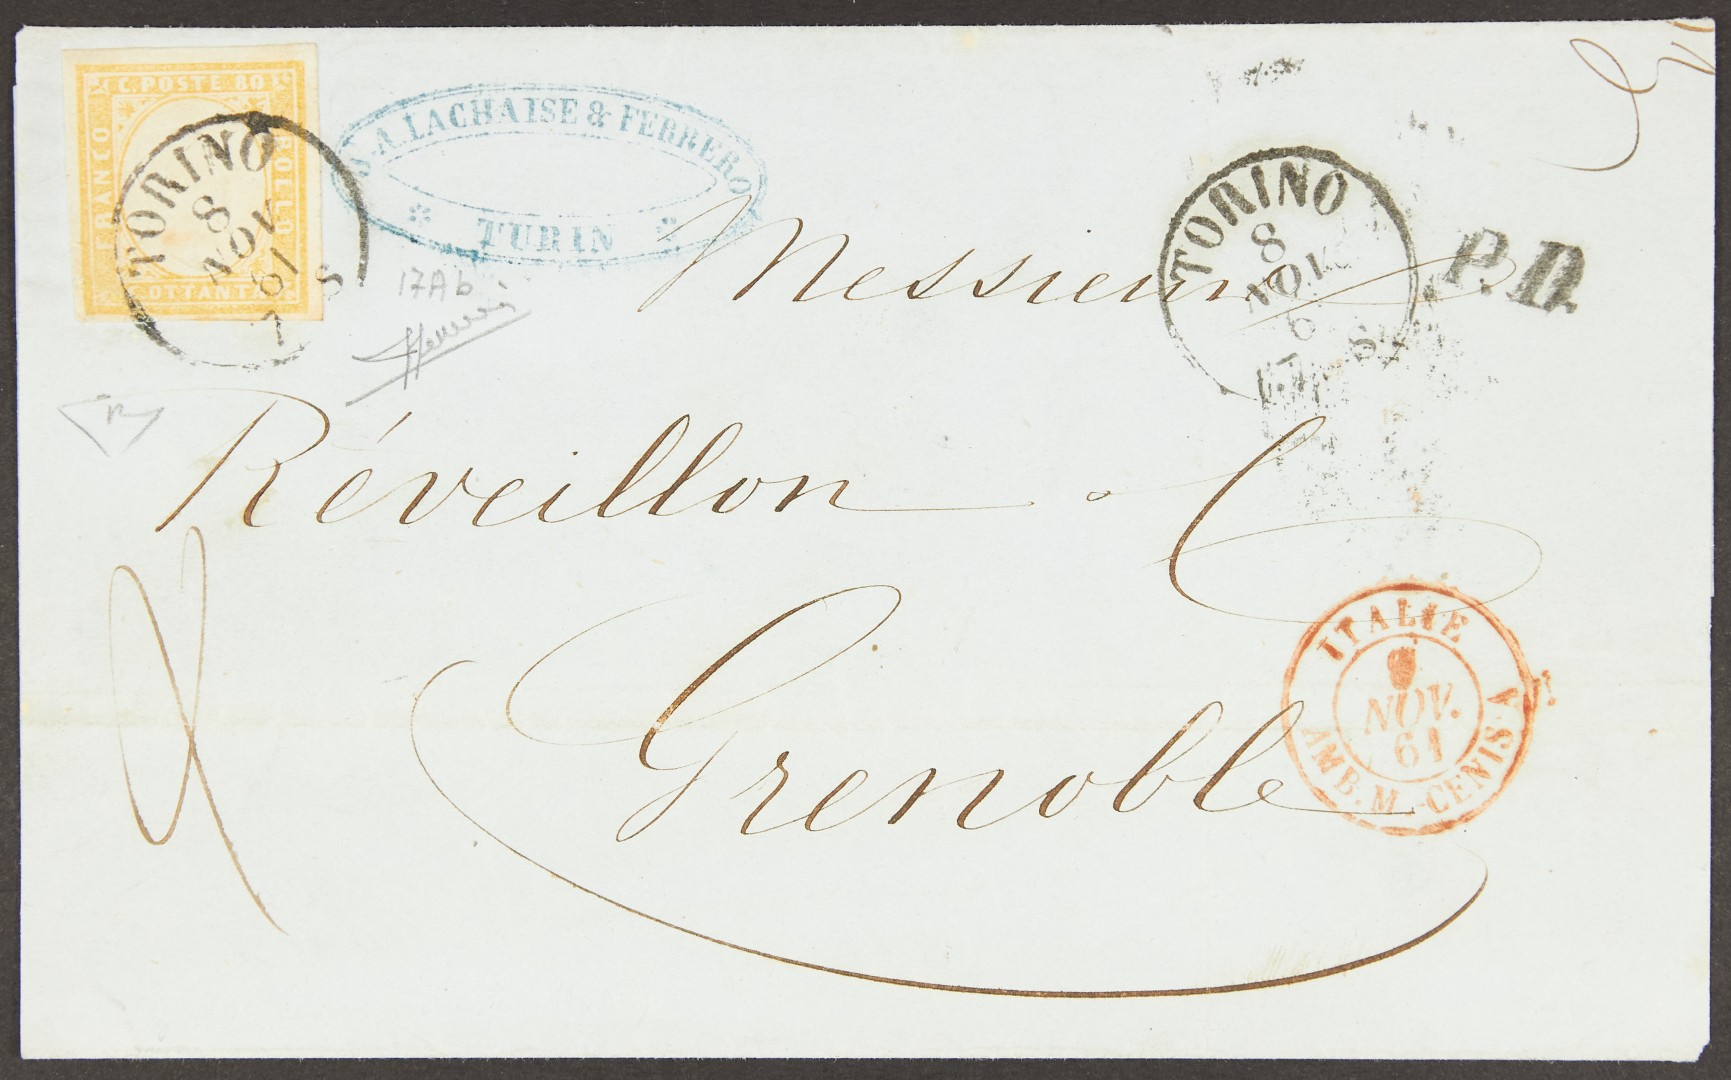 C. POSTE. 80
FRANCO
BOLLO
OTTANTA
TORINO
8
NOV
61
7 S
J. A. LACHAISE & FERRERO
* TURIN *
17Ab
TORINO
8
NOV
6
7 S
P.D.
Messieurs
Réveillon C
Grenoble
ITALIE
NOV.
61
AMB. M.-CENIS. A